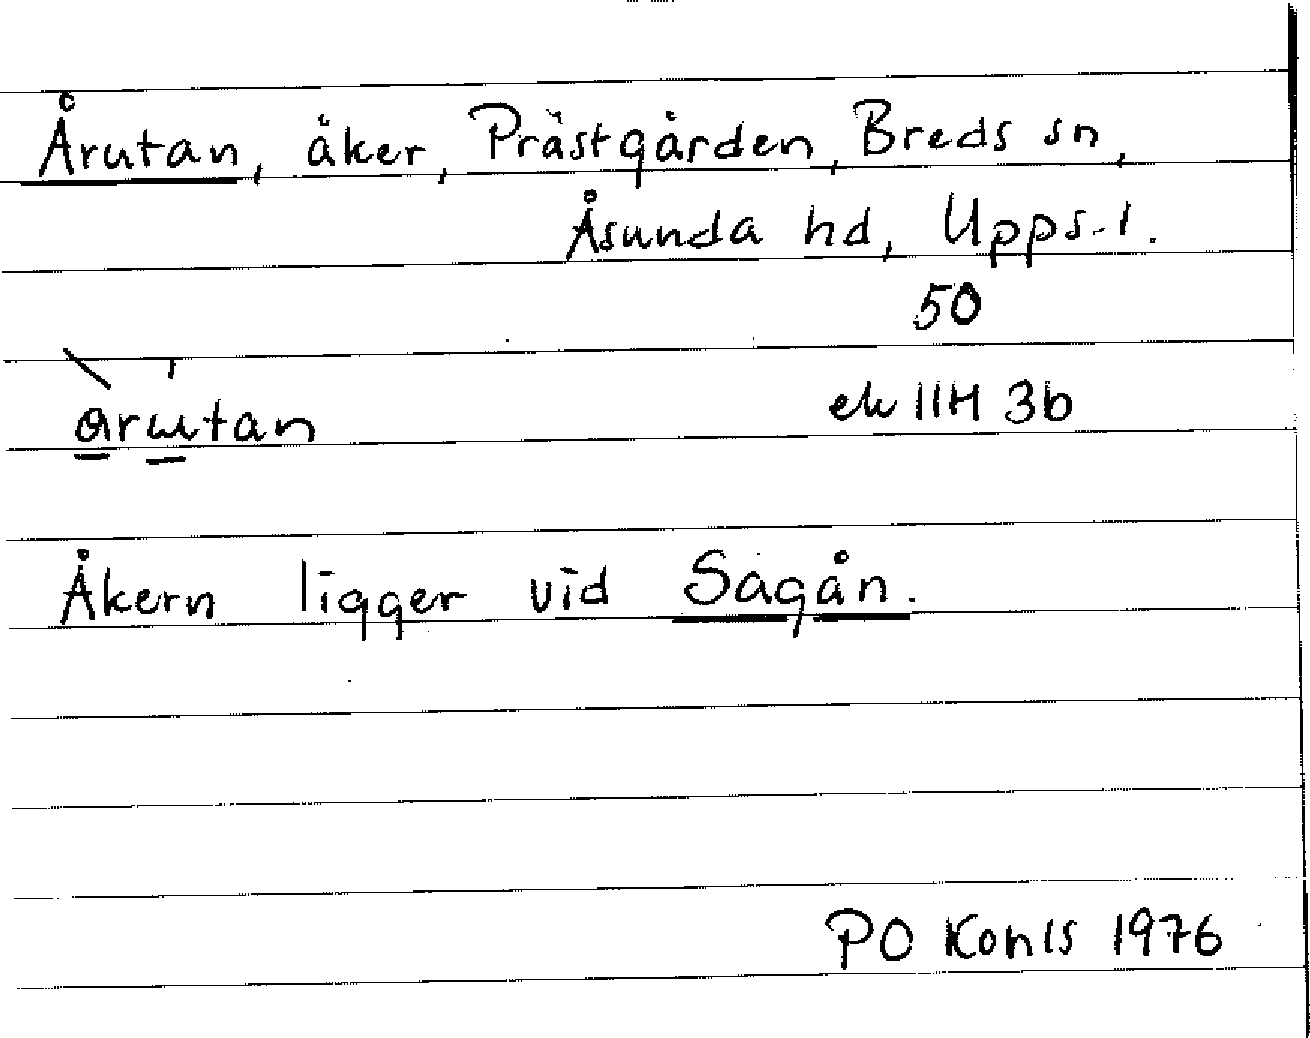 Årutan, åker, Prästgården, Breds sn,
Åsunda hd, Upps. l.
50
ek 11H 3b
Åkern ligger vid Sagån.
PO Konls 1976